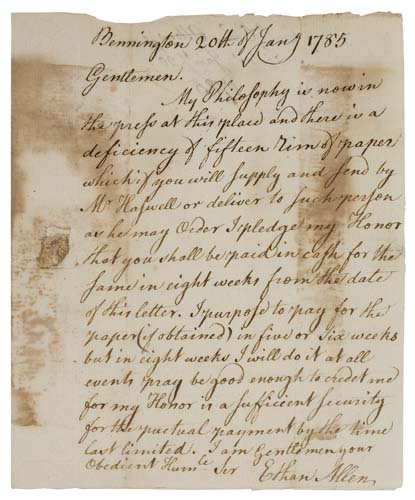 Bennington 20th of Jany 1785
Gentlemen.
My Philosophy is now in
the press at this place and there is a
deficiency of fifteen Rim of paper
which if you will supply and send by
Mr Haswell or deliver to such person
as he may Order I pledge my Honor
that you shall be paid in cash for the
same in eight weeks from the date
of this letter. I purpose to pay for the
paper (if obtained) in five or six weeks
but in eight weeks I will do it at all
events pray be good enough to credet me
for my Honor is a sufficient security
for the puctual payment by the time
last limited. I am Gentlemen your
Obedient Humle Ser
Ethan Allen